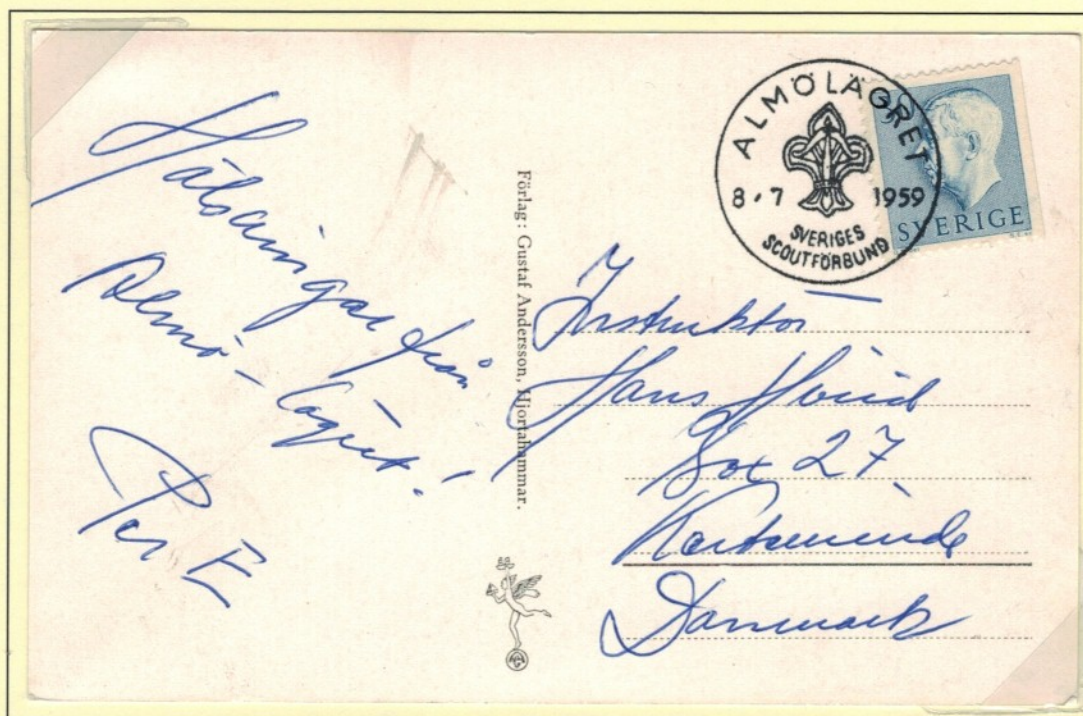 Hälsningar från
Almö-lägret!
Per E
Förlag: Gustaf Andersson, Hjortahammar.
ALMÖLÄGRET
8.7 1959
SVERIGES
SCOUTFÖRBUND
SVERIGE
Instruktör
Hans Hvid
Box 27
Kerteminde
Danmark